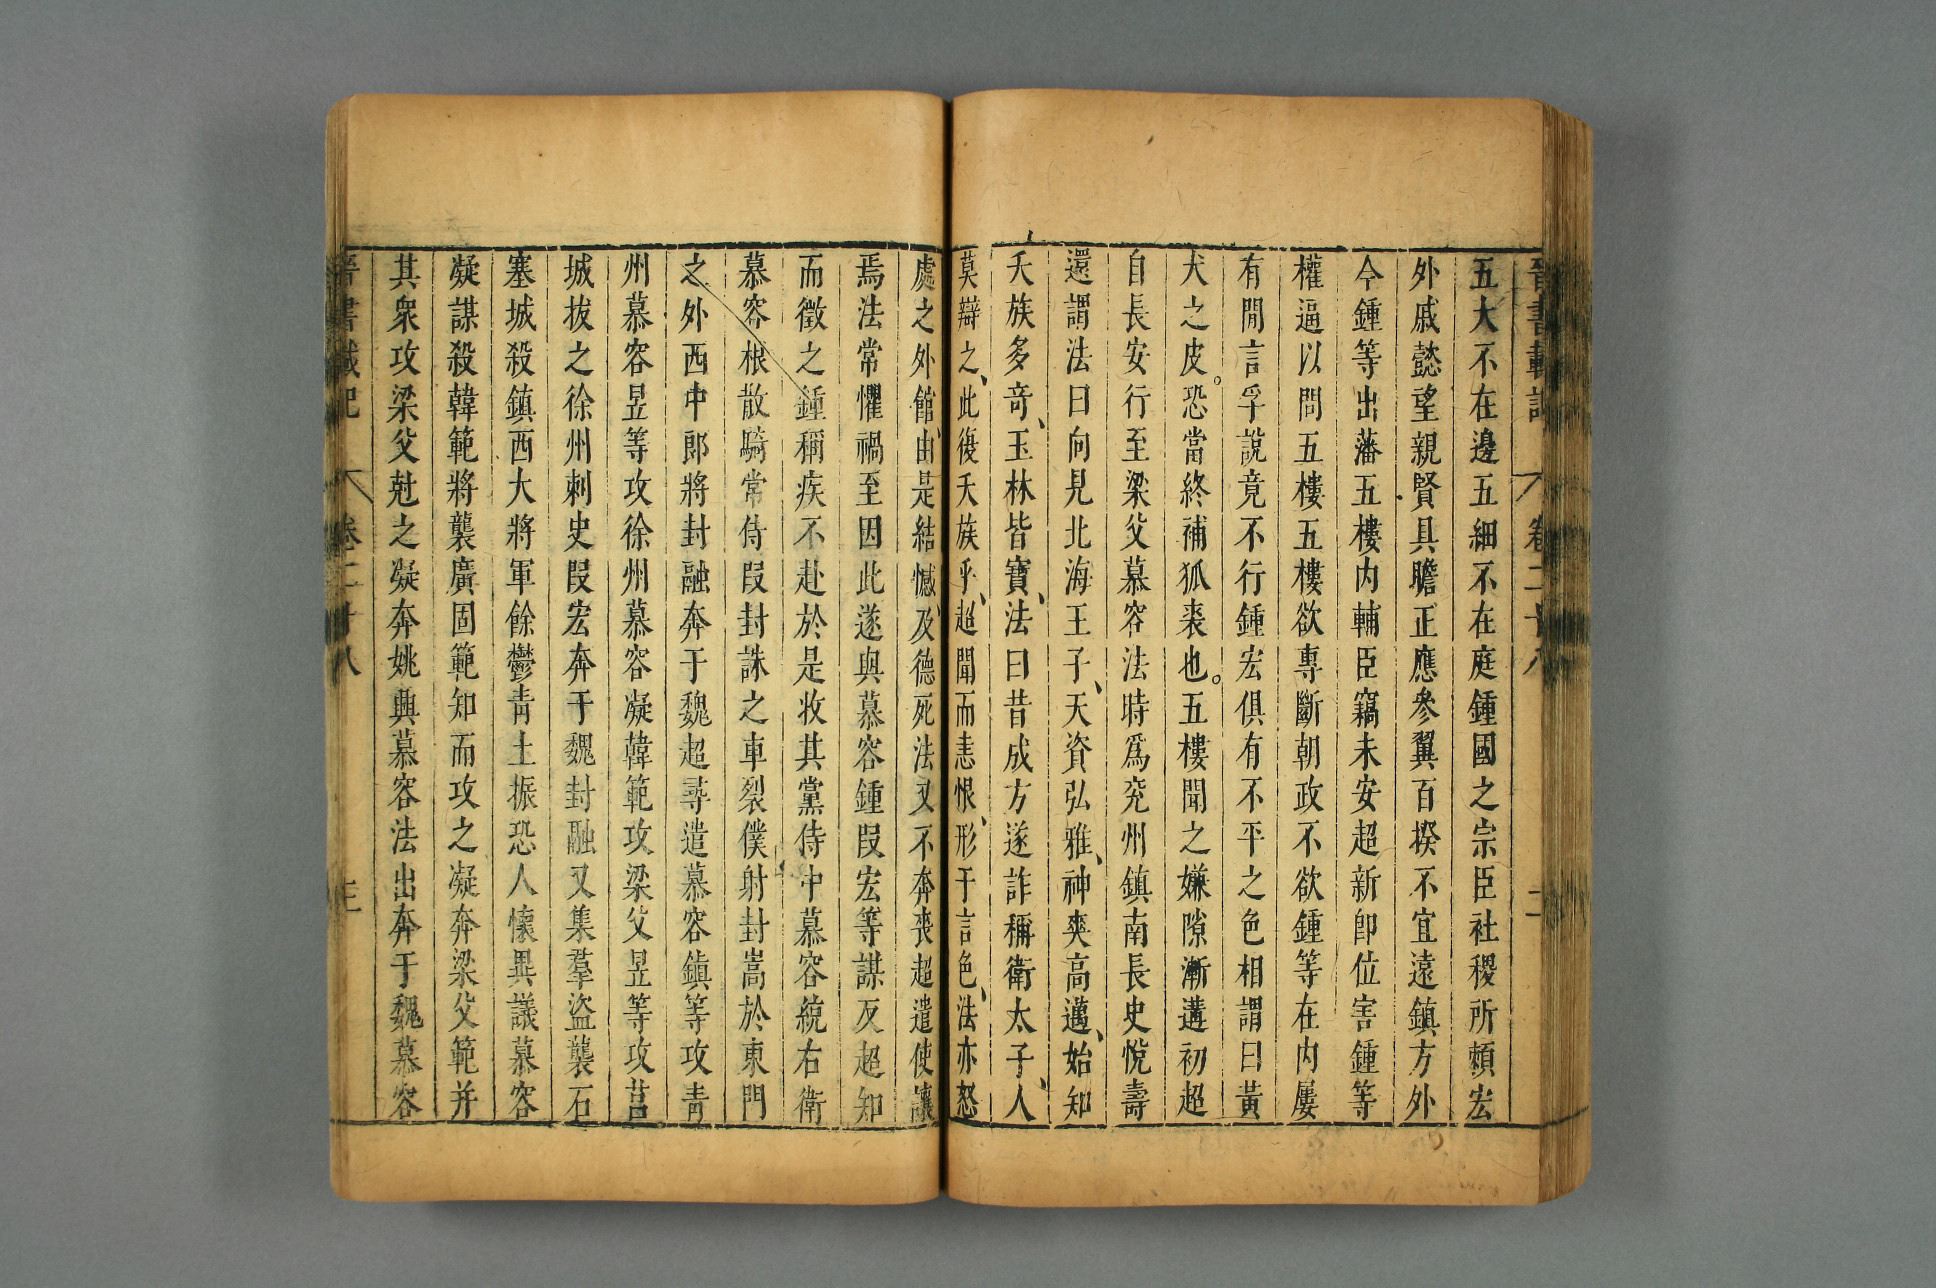 晉書載記 卷二十八 二
五大不在邊五細不在庭鍾國之宗臣社稷所賴宏
外戚懿望親賢具瞻正應參翼百揆不宜遠鎮方外
今鍾等出藩五樓內輔臣竊未安超新卽位害鍾等
權逼以問五樓五樓欲專斷朝政不欲鍾等在內屢
有閒言孚說竟不行鍾宏俱有不平之色相謂曰黃
犬之皮。恐當終補狐裘也。五樓聞之嫌隙漸遘初超
自長安行至梁父慕容法時爲兖州鎮南長史悅壽
還謂法曰向見北海王子、天資弘雅、神爽高邁、始知
天族多奇、玉林皆寶、法曰昔成方遂詐稱衛太子、人
莫辯之、此復天族乎、超聞而恚恨、形于言色、法亦怒
處之外館、由是結憾、及德死法又不奔喪超遣使讓
焉法常懼禍至因此遂與慕容鍾段宏等謀反超知
而徵之鍾稱疾不赴於是收其黨侍中慕容統右衛
慕容根散騎常侍段封誅之車裂僕射封嵩於東門
之外西中郎將封融奔于魏超尋遣慕容鎮等攻青
州慕容昱等攻徐州慕容凝韓範攻梁父昱等攻莒
城拔之徐州刺史段宏奔于魏封融又集羣盜襲石
塞城殺鎮西大將軍餘鬱青土振恐人懷異議慕容
凝謀殺韓範將襲廣固範知而攻之凝奔梁父範并
其衆攻梁父尅之凝奔姚興慕容法出奔于魏慕容
晉書載記 卷二十八 三